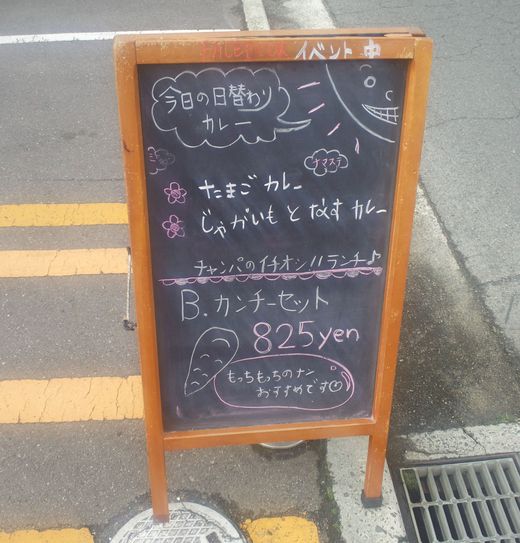 イベント中
今日の日替わり
カレー
ナマステ
たまごカレー
じゃがいもとなすカレー
チャンパのイチオシ!!ランチ♪
B.カンチーセット
825yen
もっちもっちのナン
おすすめです